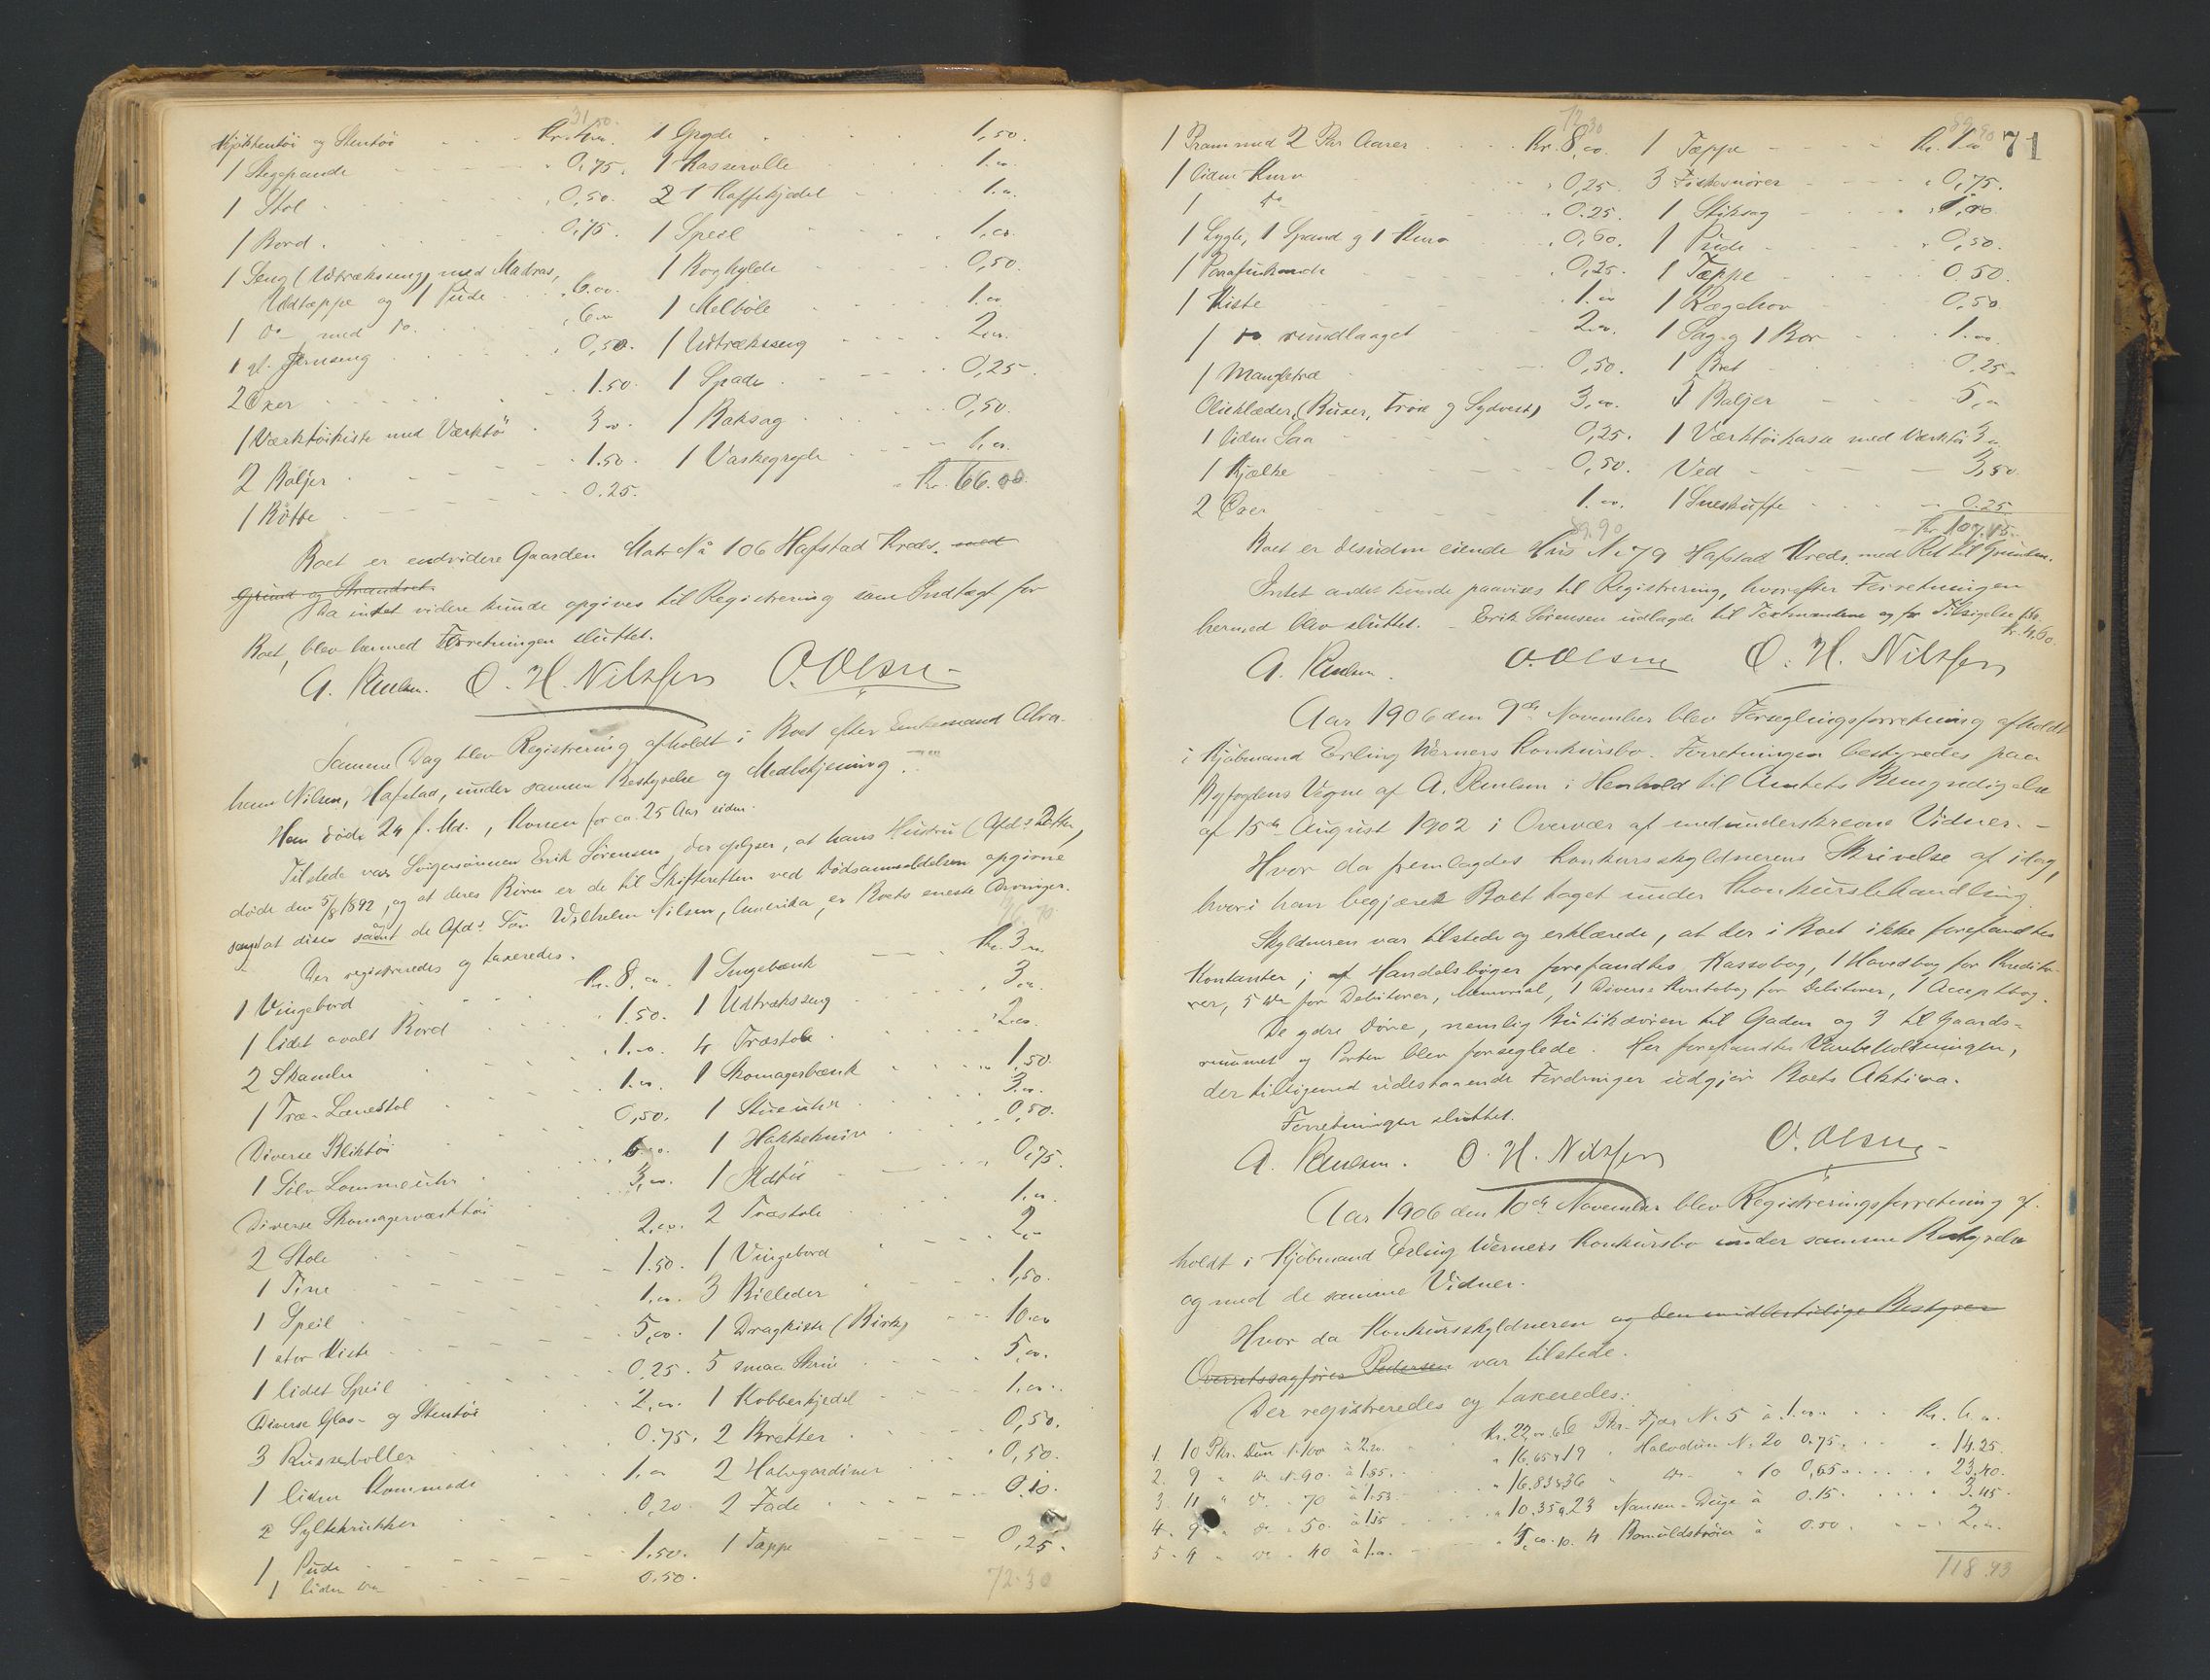 31.50.
Kjøkkentøi og Stentøi Kr. 4.00. 1 Gryde 1,50.
1 Stegepande 0,75. 1 Kasserolle 1.00
1 Stol 0,50. 2 1 Kaffekjedel 1.00
1 Bord 0,75. 1 Speil 1.00
1 Seng (Udtræksseng) med Madras, 1 Boghylde 0,50.
Uldtæppe og 1 Pude 6.00. 1 Melbøle 1.00
1 do med do. 6.00 1 Udtræksseng 2.00.
1 gl. Jernseng 0,50. 1 Spade 0,25.
2 Øxer 1.50. 1 Baksag 0,50.
1 Værktøikiste med Værktøi 3.00. 1 Vaskegryde 6.00.
2 Baljer 1.50. Kr. 66.00
1 Bøtte 0.25.
Boet er endvidere Gaarden Matr No 106 Hafstad Kreds. med
Grund og Strandret.
Da intet videre kunde opgives til Registrering som Indtægt for
Boet, blev hermed Forretningen sluttet.
A. Paulsen. O. H. Nilssen O. Olsen
Samme Dag blev Registrering afholdt i Boet efter Enkemand Abra-
ham Nilsen, Hafstad, under samme Bestyrelse og Medbetjening.
Han døde 24 f. Md., Konen for ca. 25 Aar siden.
Tilstede var Svigersønnen Erik Sørensen, der oplyser, at hans Hustru (Afd.s Datter)
døde den 5/8 1892, og at deres Børn er de til Skifteretten ved Dødsanmeldelsen opgivne
samt at disse samt de Afd.s Søn Wilhelm Nilsen, Amerika, er Boets eneste Arvinger.
Der registreredes og taxeredes.
1 Vingebord Kr. 8.00 1 Sengebænk Kr. 3.00
1 lidet ovalt Bord 1.50. 1 Udtræksseng 3.00.
2 Skamler 1.00. 4 Træstole 2.00.
1 Træ-Lænestol 1.00. 1 Skomagerbænk 1.50
Diverse Bliktøi 0,50. 1 Stueuhr 3.00.
1 Sølv Lommeuhr 6.00. 1 Hakkekniv 0,50.
Diverse Skomagerværktøi 3,00. 1 Ildtøi 0,75.
2 Stole 2,00. 2 Træstole 1.00.
1 Tine 1.50. 1 Vingebord 2.00
1 Speil 1.00. 3 Billeder 1,50.
1 stor Kiste 5,00. 1 Dragkiste (Birk) 10.00
1 lidet Speil 0,25. 5 smaa Skrin 5.00.
Diverse Glas- og Stentøi 2,00. 1 Kobberkjedel 1.00.
3 Russeboller 0.75. 2 Bretter 0,50.
1 liden Kommode 1.00 2 Halvgardiner 0,50.
2 Syltekrukker 0,20. 2 Fade 0.10.
1 Pude 1.50. 1 Tæppe 0,25.
1 liden do 0.50.
72.30
71
72.30
1 Pram med 2 Par Aarer Kr. 8,00. 1 Tæppe Kr. 1.00
1 liden Kurv 0,25. 3 Fiskesnører 0,75.
1 do 0.25. 1 Stiksag 1,00
1 Lygte, 1 Spand og 1 Kurv 0,60. 1 Pude 0,50.
1 Parafinkande 0,25. 1 Tæppe 0.50.
1 Kiste 1.00 1 Rægehov 0,50
1 do rundlaaget 2.00. 1 Sag og 1 Bor 1.00.
1 Mangletræ 0,50. 1 Bret 0.25
Olieklæder (Buxer, Trøie og Sydvest) 3,00. 5 Baljer 5,00
1 liden Saa 0,25. 1 Værktøikasse med Værktøi 3.00
1 Kjælke 0,50. Ved 3,50
2 Øxer 1.00. 1 Sneskuffe 0.25
89.90 Kr. 107,15.
Boet er desuden eiende Hus No 79 Hafstad Kreds med Ret til Grunden.
Intet andet kunde paavises til Registrering, hvorefter Forretningen
hermed blev sluttet. – Erik Sørensen udlagde til Taxtmændene og for Tilsigelse
Kr. 4.60.
A. Paulsen. O. Olsen O. H. Nilssen
Aar 1906 den 9de November blev Forseglingsforretning afholdt
i Kjøbmand Erling Werners Konkursbo. Forretningen bestyredes paa
Byfogdens Vegne af A. Paulsen i Henhold til Amtets Bemyndigelse
af 15de August 1902 i Overvær af medunderskrevne Vidner. –
Hvor da fremlagdes Konkursskyldnerens Skrivelse af idag,
hvori han begjærer Boet taget under Konkursbehandling.
Skyldneren var tilstede og erklærede, at der i Boet ikke forefandtes
Kontanter; af Handelsbøger forefandtes Kassabog, 1 Hovedbog for Kredito-
rer, 5 do for Debitorer, Memorial, 1 Diverse Kontobog for Debitorer, 1 Acceptbog.
De ydre Døre, nemlig Butikdøren til Gaden og 3 til Gaards-
rummet og Porten blev forseglede. Her forefandtes Varebeholdningen,
der tilligemed udestaaende Fordringer udgjør Boets Aktiva.
Forretningen sluttet.
A. Paulsen. O. H. Nilssen O. Olsen
Aar 1906 den 10de November blev Registreringsforretning af-
holdt i Kjøbmand Erling Werners Konkursbo under samme Bestyrelse
og med de samme Vidner.
Hvor da Konkursskyldneren og den midlertidige Bestyrer
Overretssagfører Pedersen var tilstede.
Der registreredes og taxeredes:
1. 10 Pk. Dun N. 100 à 2.20. Kr. 22,00 6. 6 Pk. Fjær No 5 à 1.00 Kr. 6.00.
2. 9 " do N. 90. à 1.85. 16.65 7. 19 " Halvdun No 20 0.75 14.25.
3. 11 " do 70 à 1.53 16.83 8. 36 " do " 10 0,65 23.40.
4. 9 " do 50. à 1.15 10.35 9. 23 Nansen-Duge à 0.15 3.45
5. 4 " do 40 à 1.00. 4,00. 10. 4 Bomuldstrøier à 0.50. 2.00.
118.93